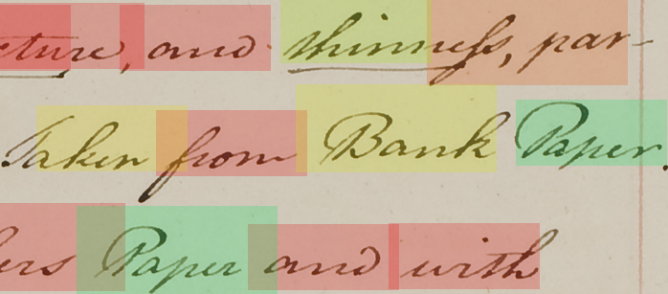 cture, and thinness, par-
Taken from Bank Paper.
ers Paper and with